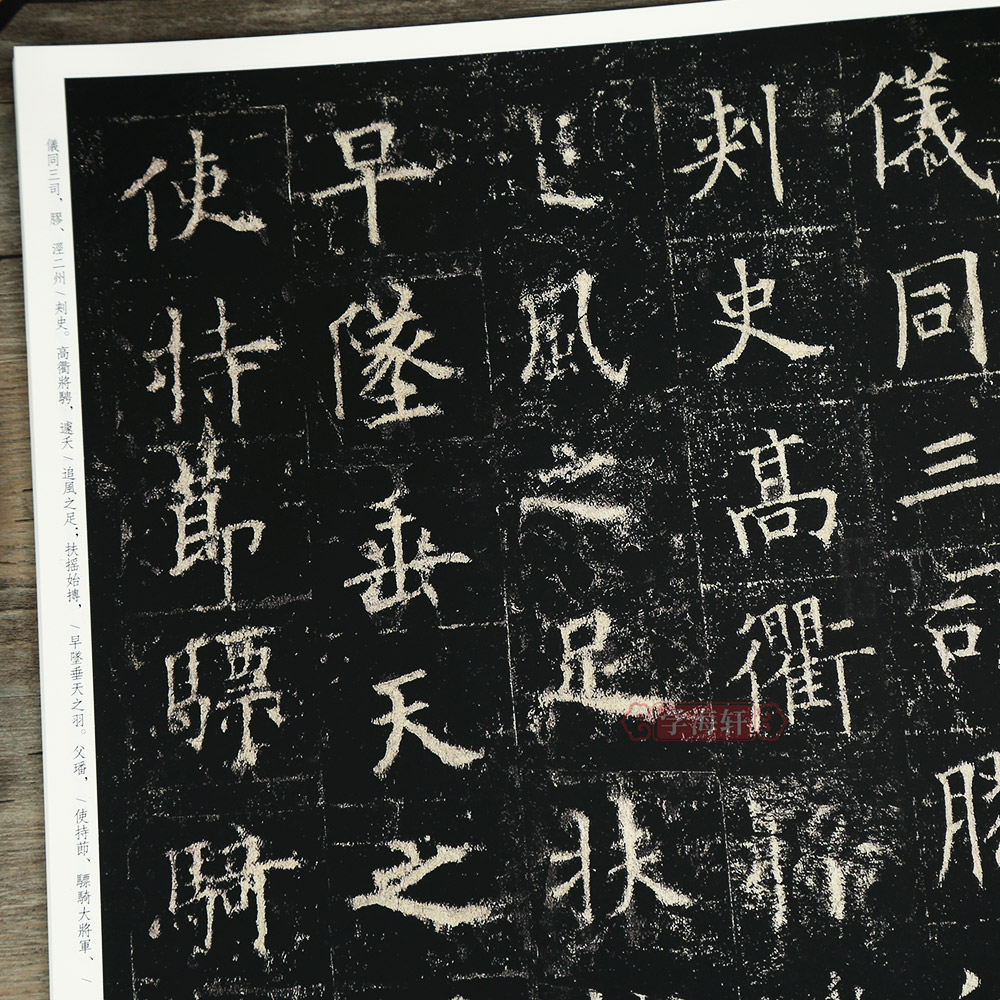 儀同三司膠
刺史高衢將
追風之足扶
早墜垂天之
使持節驃騎
儀同三司、膠、涇二州/刺史。高衢將騁，遽夭/追風之足；扶摇始摶，/早墜垂天之羽。父璠，/使持節、驃騎大將軍、/
学海轩